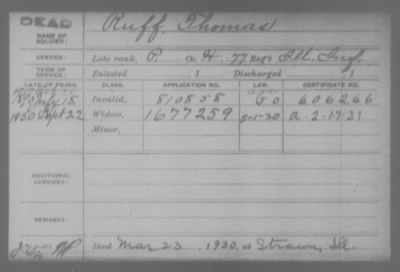 DEAD
NAME OF SOLDIER: Ruff, Thomas
SERVICE: Late rank, P. Co. H, 77 Reg't Ill. Inf.
TERM OF SERVICE: Enlisted , 1 Discharged , 1
DATE OF FILING. CLASS. APPLICATION NO. LAW. CERTIFICATE NO.
1890 July 18 Invalid, 810858 90 606266
1930 Sept 22 Widow, 1677259 5-1-20 a-2-17-31
Minor,
ADDITIONAL SERVICES:
REMARKS:
Died Mar 23, 1930, at Strawn, Ill.